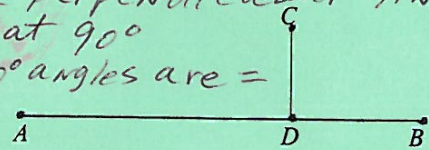 at 90°
° angles are =
C
A D B